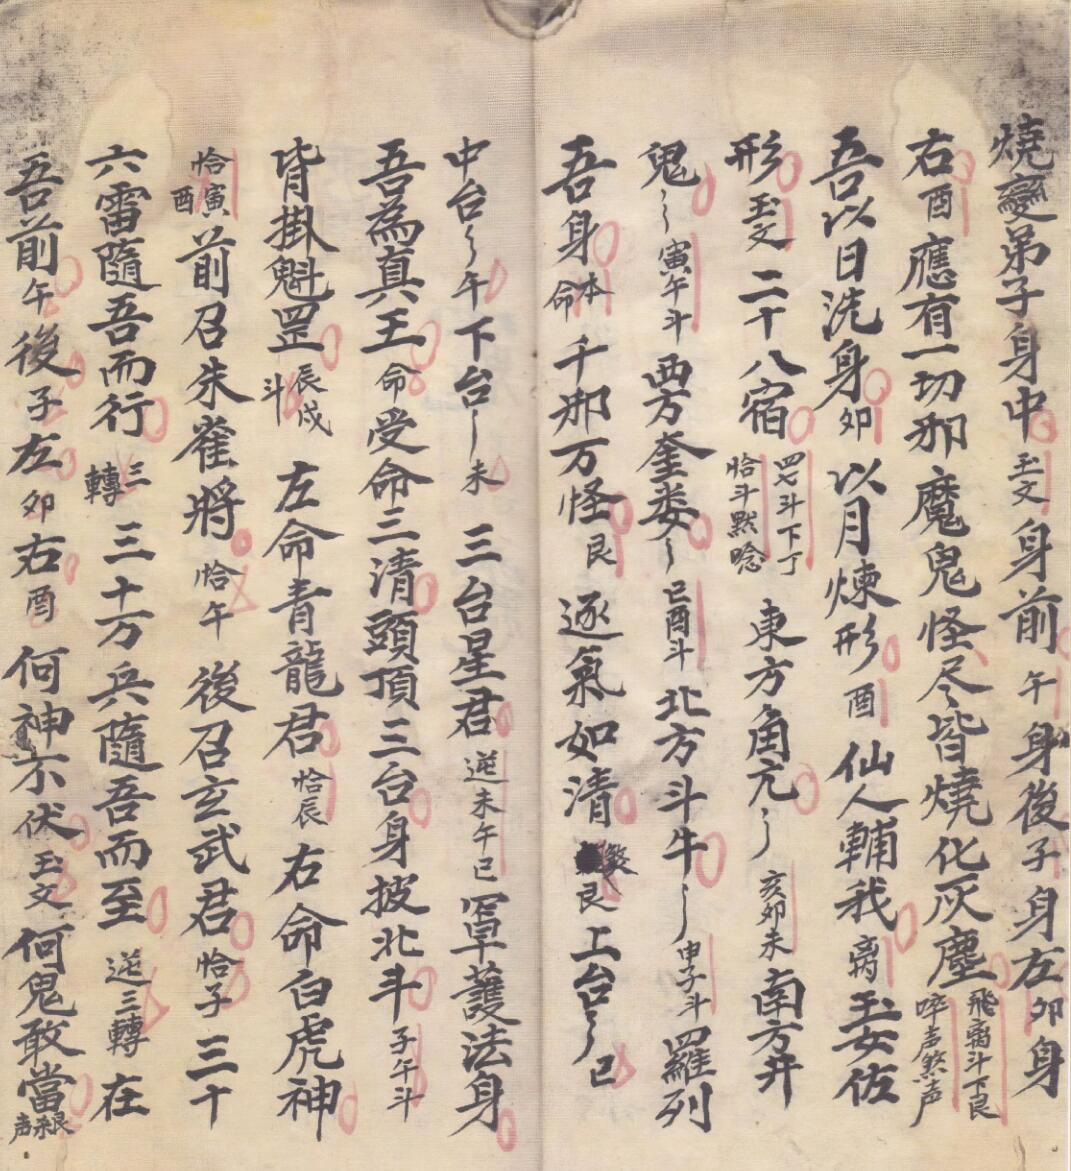 燒變弟子身中玉文身前午身後子身左卯身
右酉應有一切邪魔鬼怪尽皆燒化灰塵飛离斗下艮啐声煞声
吾以日洗身卯以月煉形酉仙人輔我离玉女佐
形玉文二十八宿四七斗下丁恰斗默唸東方角亢〻亥卯未南方井
鬼〻寅午斗西方奎娄〻巳酉斗北方斗牛〻申子斗羅列
吾身本命千邪万怪艮逐氣如清煞艮上台〻巳
中台〻午下台〻未三台星君逆未午巳罩護法身
吾為真王命受命三清頭頂三台身披北斗子午斗
皆掛魁罡辰戌斗左命青龍君恰辰右命白虎神
恰寅酉前召朱雀將恰午後召玄武君恰子三十
六雷隨吾而行三轉三十万兵隨吾而至逆三轉在
吾前午後子左卯右酉何神不伏玉文何鬼敢當艮声